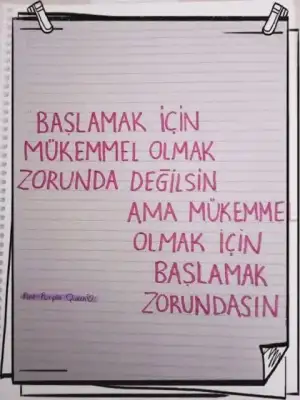 BAŞLAMAK İÇİN
MÜKEMMEL OLMAK
ZORUNDA DEĞİLSİN
AMA MÜKEMMEL
OLMAK İÇİN
BAŞLAMAK
ZORUNDASIN